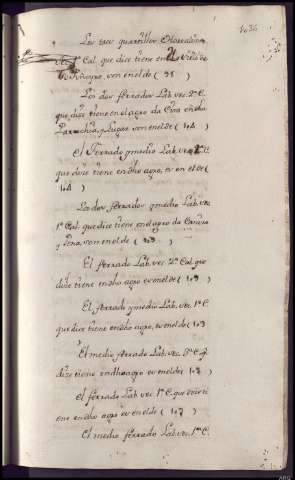 1036
Los tres quartillos
1ª Cal. que dice tiene en el
van en el de ( 38 )
Los dos ferrados Lab. vec. 2ª C.
que dice tiene en el agro da
Parrochia, y Lugar van en el de ( 104 )
El Ferrado y medio Lab. vec.
que dice tiene en dho agro, ev en el de (
104 )
Los dos ferrados y medio Lab. vec.
1ª Cal. que dice tiene en el agro da
van en el de ( 103 )
El ferrado Lab. vec. 2ª Cal. que
dice tiene en dho agro ev en el de ( 103 )
El ferrado y medio Lab. vec. 1ª C.
que dice tiene en dho agro, ev en el de ( 103
)
El medio ferrado Lab. vec. 3ª C. q.
dize tiene en dho agro ev en el de ( 103 )
El ferrado Lab. vec. 1ª C. que dice ti
ene en dho agro ev en el de ( 107 )
El medio ferrado Lab. vec. 1ª C.
ARG